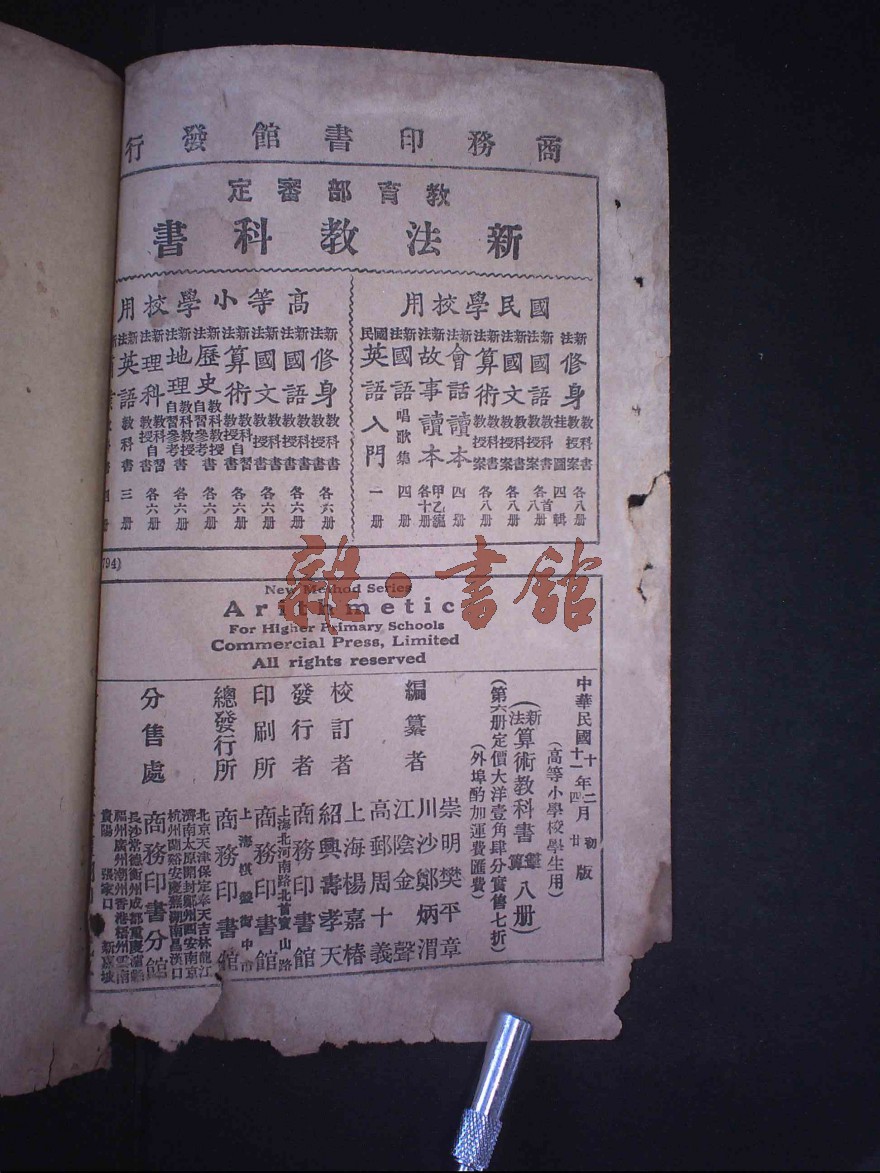 商務印書館發行
教育部審定
新法教科書
國民學校用
新法修身教科書教授案各八册
掛圖四輯
新法國語教科書教授案首各八册
新法國文教科書教授案各八册
新法算術教科書教授案各八册
新法會話讀本四册
新法故事讀本甲乙編各十册
新法國語唱歌集四册
國民英語入門一册
高等小學校用
新法修身教科書教授書各六册
新法國語教科書教授書各六册
新法國文教科書教授書各六册
新法算術教科書教授書自習書各六册
新法歷史教科書教授書自習參考書各六册
新法地理教科書教授書自習參考書各六册
新法理科教科書教授書自習書各六册
新法英語教科書三册
794)
New Method Series
Arithmetic
For Higher Primary Schools
Commercial Press, Limited
All rights reserved
雜·書館
中華民國十年二月初版
十一 四 廿
(高等小學校學生用)
(新法算術教科書筆算八册)
(第六册定價大洋壹角肆分實售七折)
(外埠酌加運費匯費)
編纂者
崇明樊平章
川沙鄭炳渭
江陰金聲
高郵周十義
校訂者
上海楊嘉椿
紹興壽孝天
發行者
商務印書館
印刷所
上海北河南路北首寶山路
商務印書館
總發行所
上海棋盤街中市
商務印書館
分售處
北京天津保定奉天吉林龍江
濟南太原開封鄭州西安南京
杭州蘭谿安慶蕪湖南昌漢口
商務印書分館
長沙常德衡州成都重慶瀘縣
福州廣州潮州香港梧州雲南
貴陽 張家口 新嘉坡